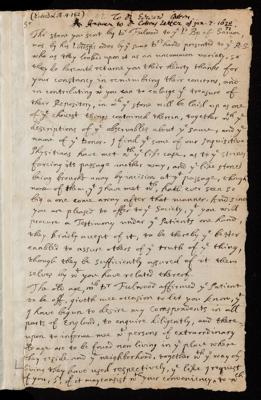 To Dr Edward Cotton,
An Answer to
The stone you sent by Dr Fulwood to yr Bp of Sarum,
was by his Lordsp's order by same hands presented to ye R.S.
who as they looked upon it as an uncommon rarity, so
they do herewith returne you their thanks for
your constancy in remembring their concerns, and
in contributing wt you can to enlarge ye treasure of
their Repository, in wch ye stone will be laid up as one
of ye choicest things contained therein, together wth ye
descriptions of ye observables about ye same, and ye
name of ye donor. I find yt some of our Inquisitive
Physitians have met wth ye like case, as to ye stones
forcing its passage another way, and ye like stones
being brought away by incision at ye passage, though
none of them yt I have met with, hath ever seen so
big a one come away after that manner. And since
you are pleased to offer to ye Society, yt you will
procure a Testimony under ye Patients own hand,
they kindly accept of it, to be thereby ye better
enabled to assure others of ye truth of ye thing,
though they be sufficiently assured of it them
selves by wt you have related thereof.
The age, wch Dr Fulwood affirmed ye Patient
to be off, giveth mee occasion to let you know, yt
I have begun to desire my Correspondents in all
parts of England, to enquire diligently, and there
upon to informe mee wt persons of extraordinary
age are to be found now living in ye place where
they reside and ye neighborhood, together wth ye way of
living they have used respectively. ye like I request
of you, Sr. if it may consist wth your conveniency, to wch